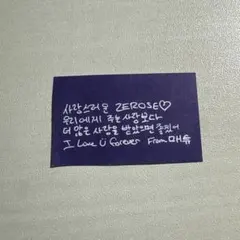 사랑스러운 ZEROSE♡
우리에게 주는 사랑보다
더 많은 사랑을 받았으면 좋겠어
I Love U forever From 매튜